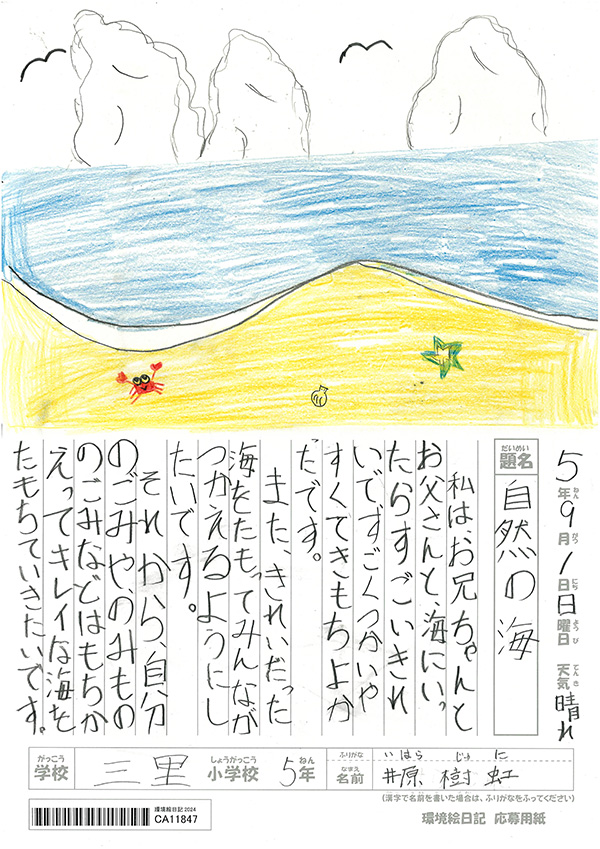 5年9月1日日曜日 天気 晴れ
ねん がつ にち ようび てんき
だいめい
題名 自然の海
私は、お兄ちゃんと
お父さんと、海にいっ
たらすごいきれ
いですごくつかいや
すくてきもちよか
たです。
また、きれいだった
海をたもってみんなが
つかえるようにし
たいです。
それから、自分
のごみや、のみもの
のごみなどはもちか
えってキレイな海を
たもちていきたいです。
がっこう しょうがっこう ねん
学校 三里 小学校 5年
ふりがな いはら じゅ に
なまえ
名前 井原 樹虹
(漢字で名前を書いた場合は、ふりがなをふってください)
環境絵日記 2024
CA11847
環境絵日記 応募用紙